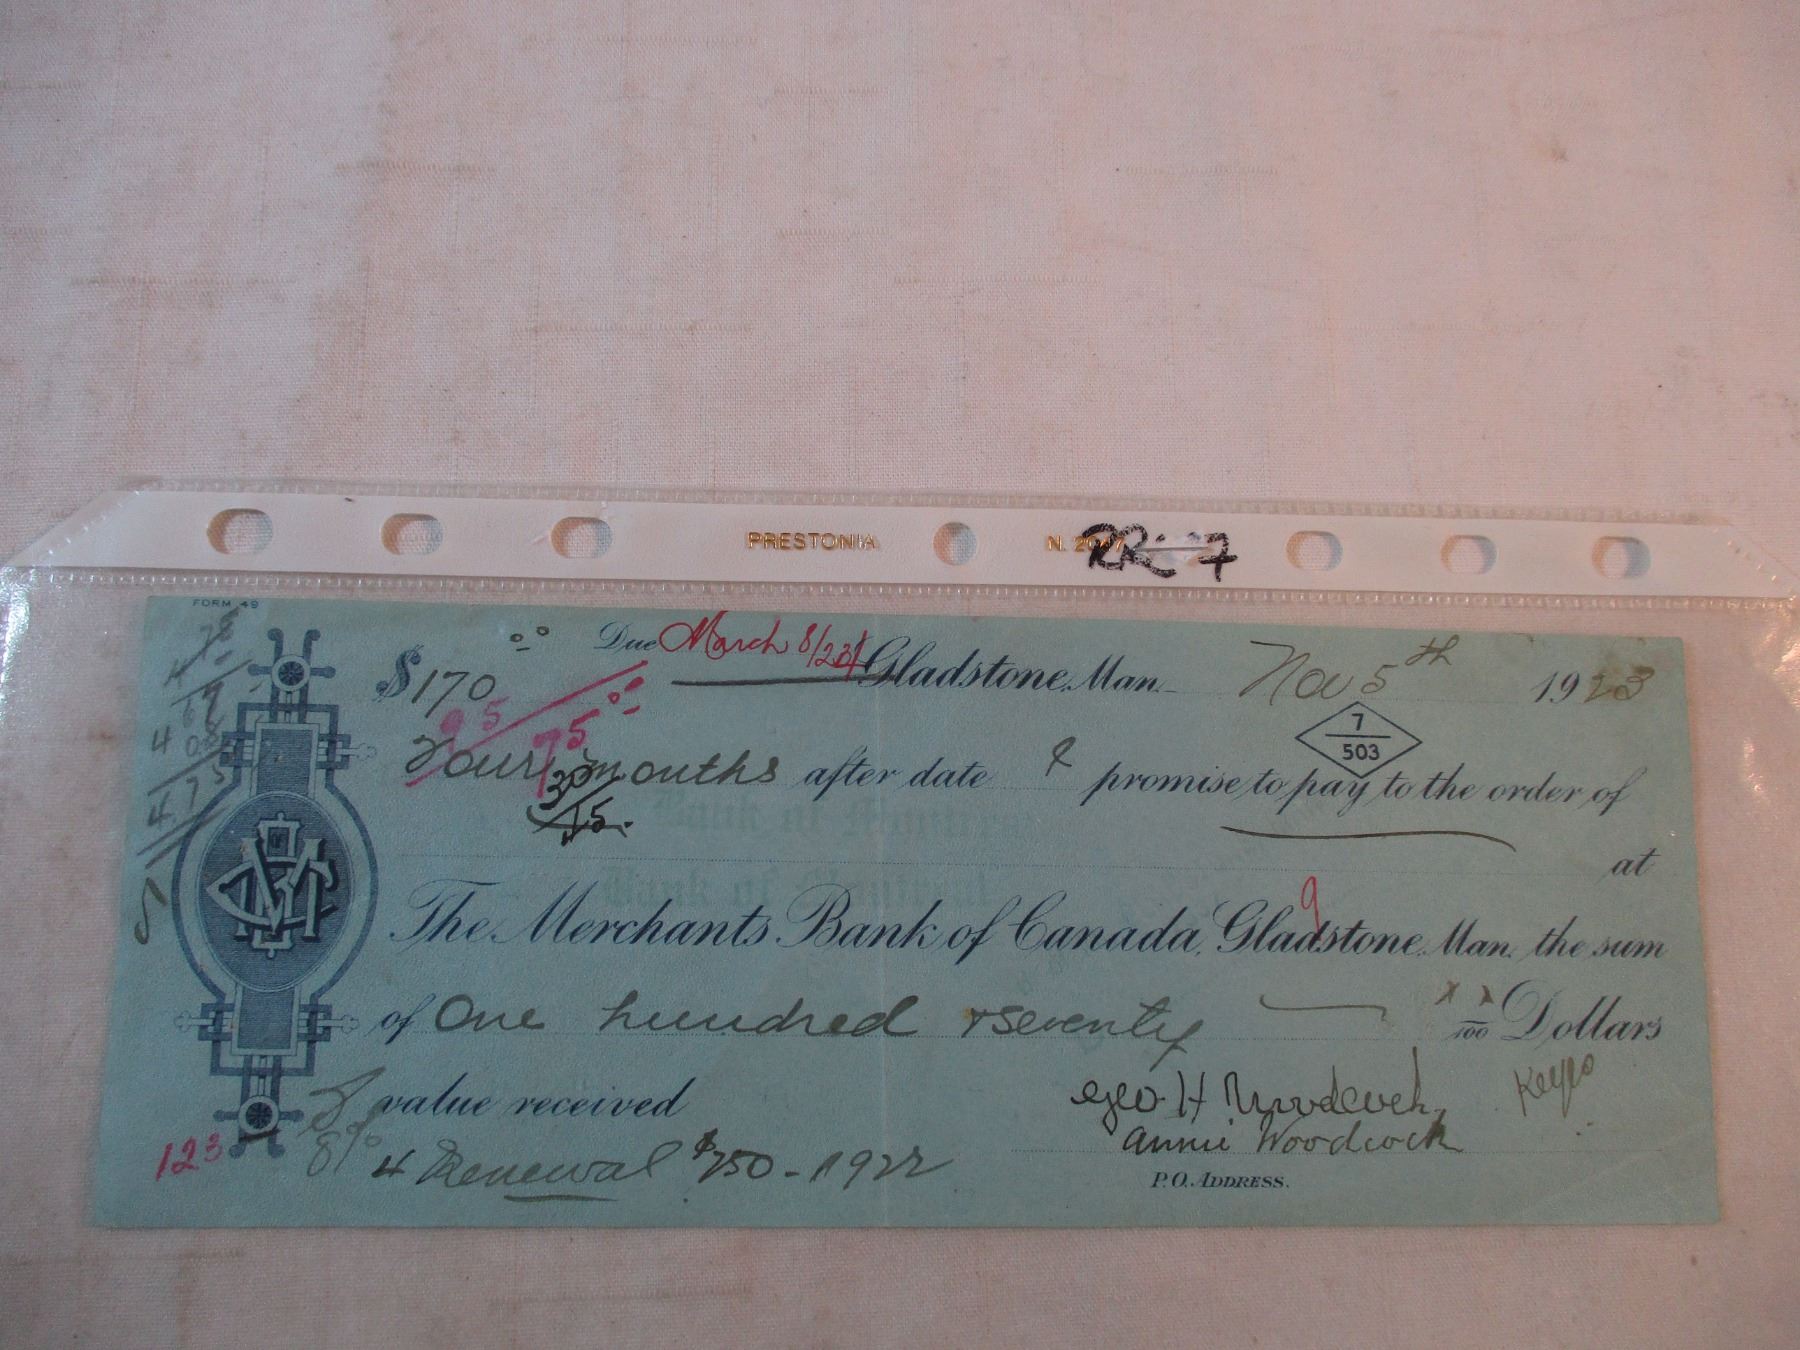 PRESTONIA N. 2047
RR 27
FORM 49
$170 00 Due March 8/24 Gladstone, Man. Nov 5th 1923
95 75 00
7
503
Four months after date I promise to pay to the order of
30
15.
at
The Merchants Bank of Canada, Gladstone, Man. the sum
of One hundred & seventy x x/100 Dollars
value received
Geo H Woodcock
Keyes
Annie Woodcock
P.O. ADDRESS.
123 8% 4 Renewal $250 - 1922